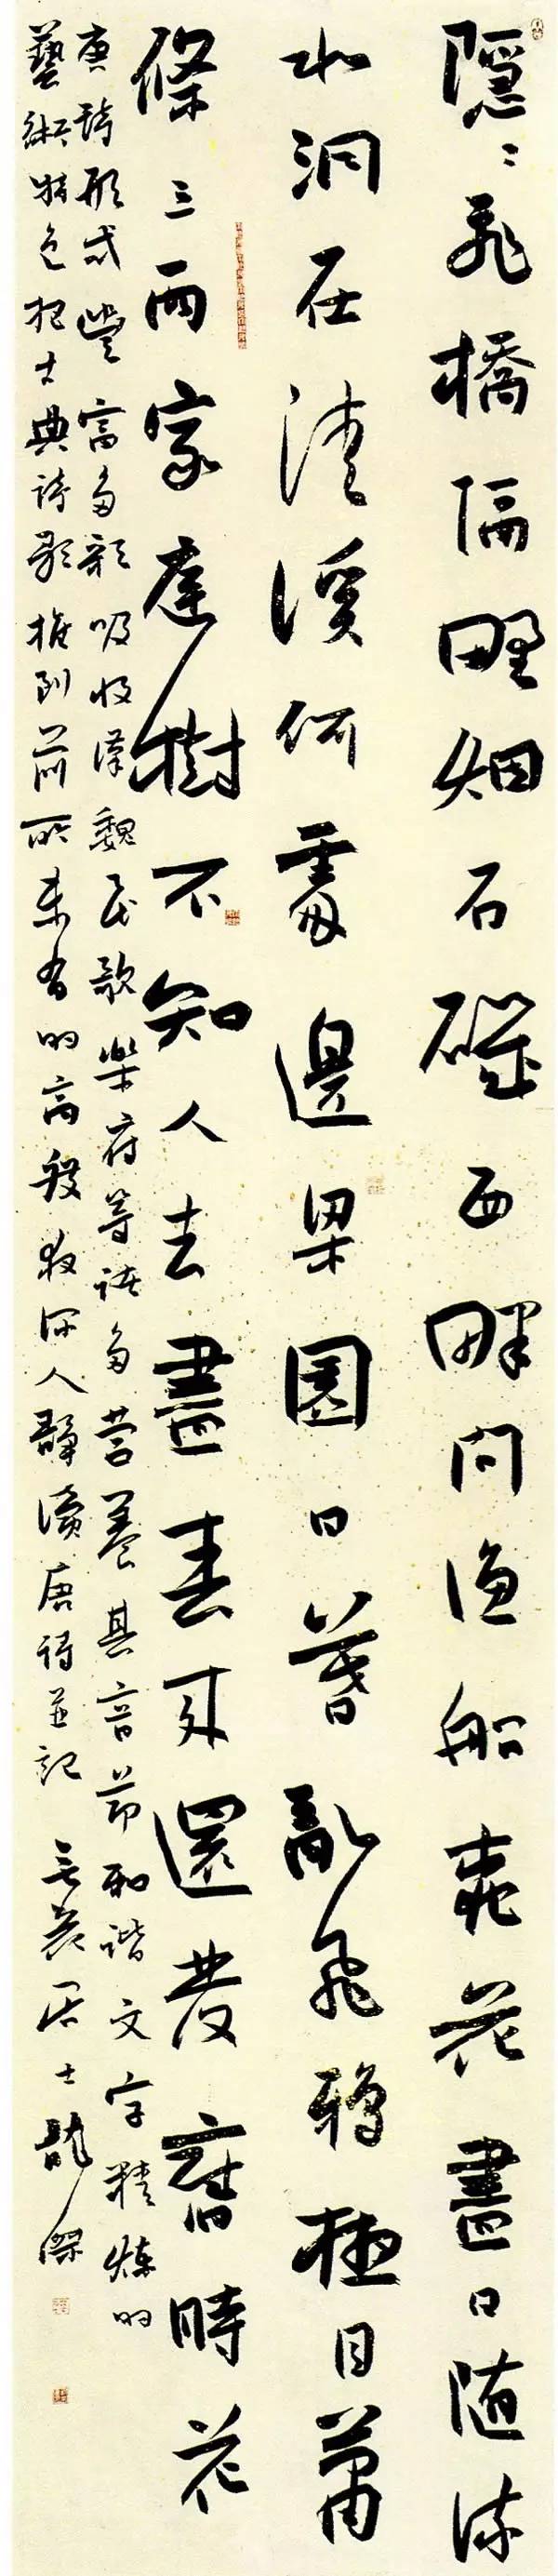 隱〻飛橋隔野烟石磯西畔問漁船桃花盡日隨流
水洞在清溪何處邊梁園日暮亂飛鴉極目蕭
條三兩家庭樹不知人去盡春來還發舊時花
唐詩形式豐富多彩吸收漢魏民歌樂府等諸多營養其音節和諧文字精煉的
藝術特色把古典詩歌推到前所未有的高段夜深人靜讀唐詩並記 居士